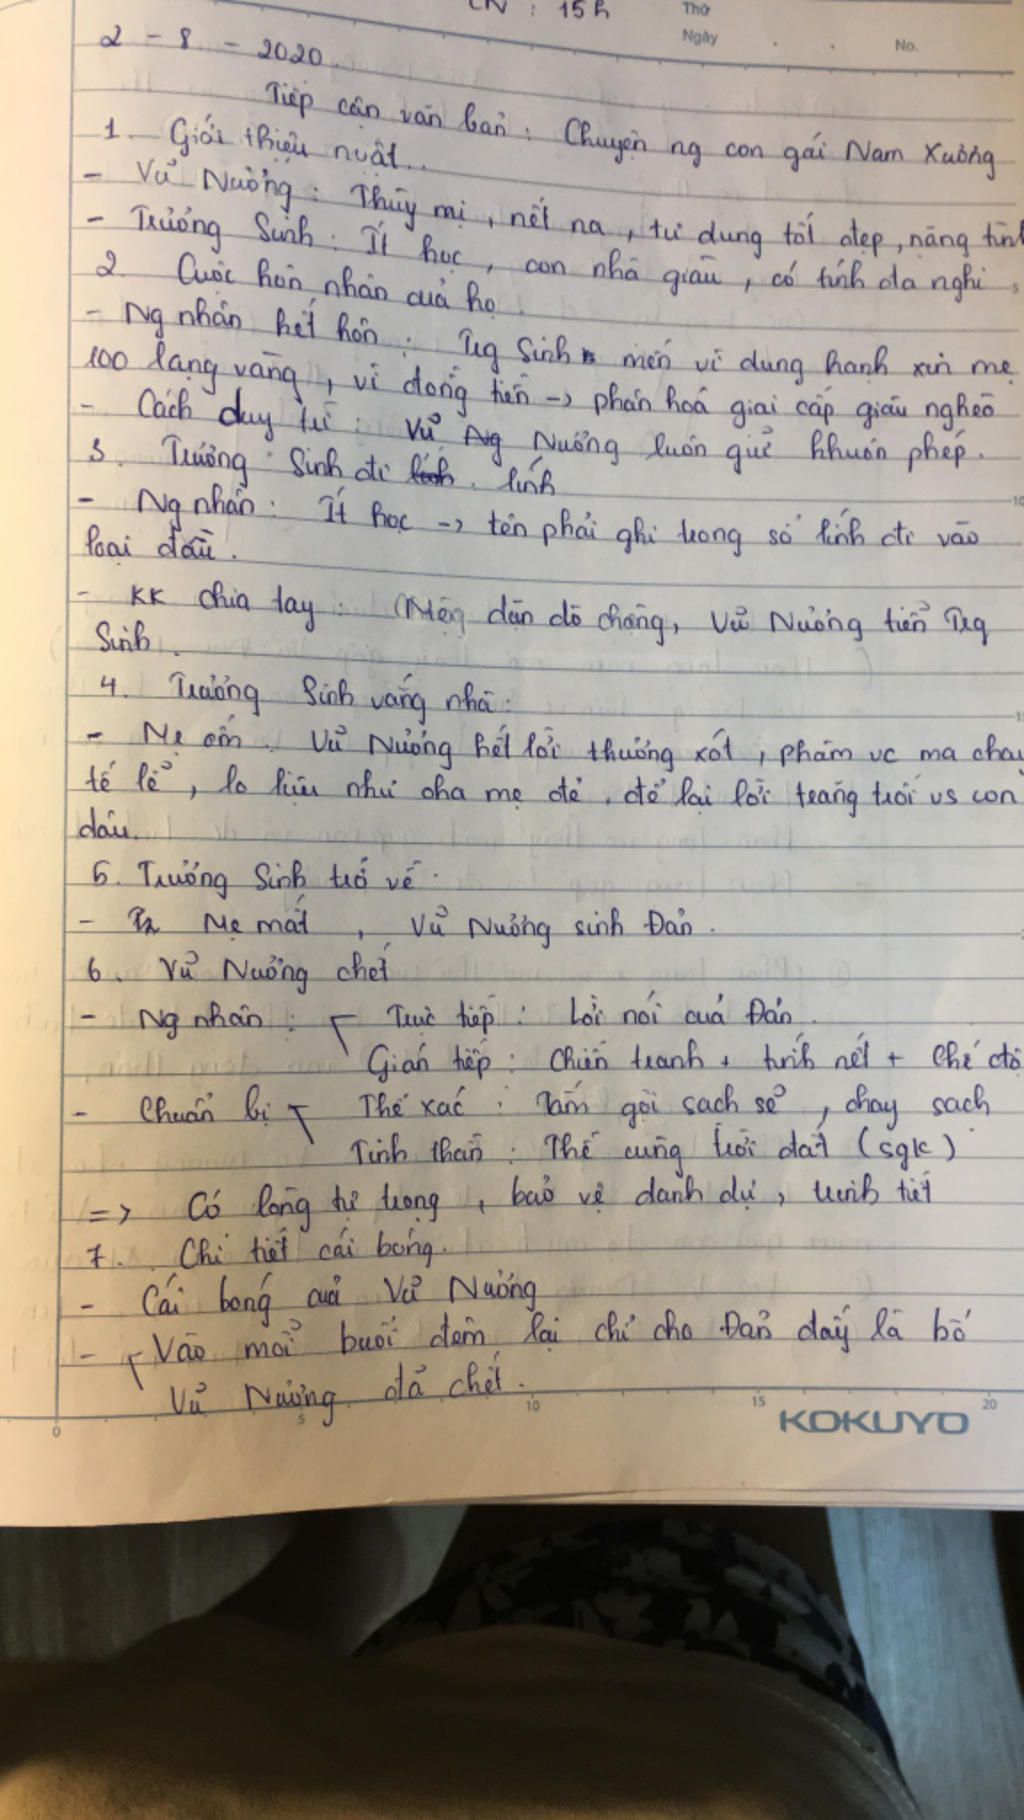 CN : 15h
Thứ
Ngày . . No.
2 - 8 - 2020.
Tiếp cận văn bản : Chuyện ng con gái Nam Xương
1. Giới thiệu nvật..
- Vũ Nương : Thùy mị, nết na, tư dung tốt đẹp, năng tính
- Trương Sinh : Ít học, con nhà giàu, có tính đa nghi
2. Cuộc hôn nhân của họ.
- Ng nhân kết hôn : Trg Sinh mến vì dung hạnh xin mẹ
100 lạng vàng, vì đồng tiền -> phân hoá giai cấp giàu nghèo
- Cách duy trì : Vũ Nương luôn giữ khuôn phép.
3. Trương Sinh đi lính
- Ng nhân : Ít học -> tên phải ghi trong sổ lính đi vào
loại đầu.
- KK chia tay : (Mẹ) dặn dò chồng, Vũ Nương tiễn Trg
Sinh.
4. Trương Sinh vắng nhà :
- Mẹ ốm. Vũ Nương hết lời thương xót, phàm vc ma chay
tế lễ, lo liệu như cha mẹ đẻ, để lại lời trăng trối vs con
dâu.
5. Trương Sinh trở về.
- Mẹ mất, Vũ Nương sinh Đản.
6. Vũ Nương chết
- Ng nhân : Trực tiếp : Lời nói của Đản.
Gián tiếp : Chiến tranh + tính nết + Chế độ
- Chuẩn bị Thể xác : Tắm gội sạch sẽ, chay sạch
Tinh thần : Thề cùng trời đất (sgk)
=> Có lòng tự trọng, bảo vệ danh dự, trinh tiết
7. Chi tiết cái bóng.
- Cái bóng của Vũ Nương
- Vào mỗi buổi đêm lại chỉ cho Đản đấy là bố
Vũ Nương đã chết.
0 5 10 15 20
KOKUYO